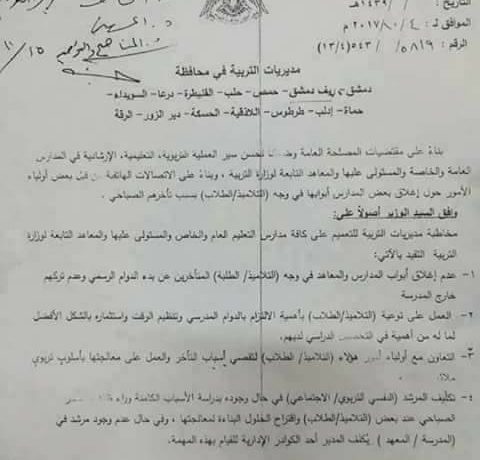 التاريخ / /١٤٣٩هـ
الموافق لـ ٤ /١٠/ ٢٠١٧ م
الرقم : ٥٨١٩ /٥٤٣ (١٣/٤)
١٥/ ١١
مديريات التربية في محافظة
دمشق - ريف دمشق - حمص - حلب - القنيطرة - درعا - السويداء -
حماة - إدلب - طرطوس - اللاذقية - الحسكة - دير الزور - الرقة
بناءً على مقتضيات المصلحة العامة لحسن سير العملية التربوية، التعليمية، الإرشادية في المدارس
العامة والخاصة والمستولى عليها والمعاهد التابعة لوزارة التربية ، وبناءً على الاتصالات الهاتفية من قبل بعض أولياء
الأمور حول إغلاق بعض المدارس أبوابها في وجه (التلاميذ/الطلاب) بسبب تأخرهم الصباحي
وافق السيد الوزير أصولاً على:
مخاطبة مديريات التربية للتعميم على كافة مدارس التعليم العام والخاص والمستولى عليها والمعاهد التابعة لوزارة
التربية التقيد بالآتي:
١- عدم إغلاق أبواب المدارس والمعاهد في وجه (التلاميذ/ الطلبة) المتأخرين عن بدء الدوام الرسمي وعدم تركهم
خارج المدرسة
٢- العمل على توعية (التلاميذ/الطلاب) بأهمية الالتزام بالدوام المدرسي وتنظيم الوقت واستثماره بالشكل الأفضل
لما له من أهمية في التحصيل الدراسي لديهم.
٣- التعاون مع أولياء أمور هؤلاء (التلاميذ/ الطلاب) لتقصي أسباب التأخر والعمل على معالجتها بأسلوب تربوي
٤- تكليف المرشد (النفسي التربوي/ الاجتماعي) في حال وجوده بدراسة الأسباب الكامنة وراء
الصباحي عند بعض (التلاميذ/الطلاب) واقتراح الحلول البناءة لمعالجتها ، وفي حال عدم وجود مرشد في
(المدرسة / المعهد ) يُكلف المدير أحد الكوادر الإدارية للقيام بهذه المهمة.